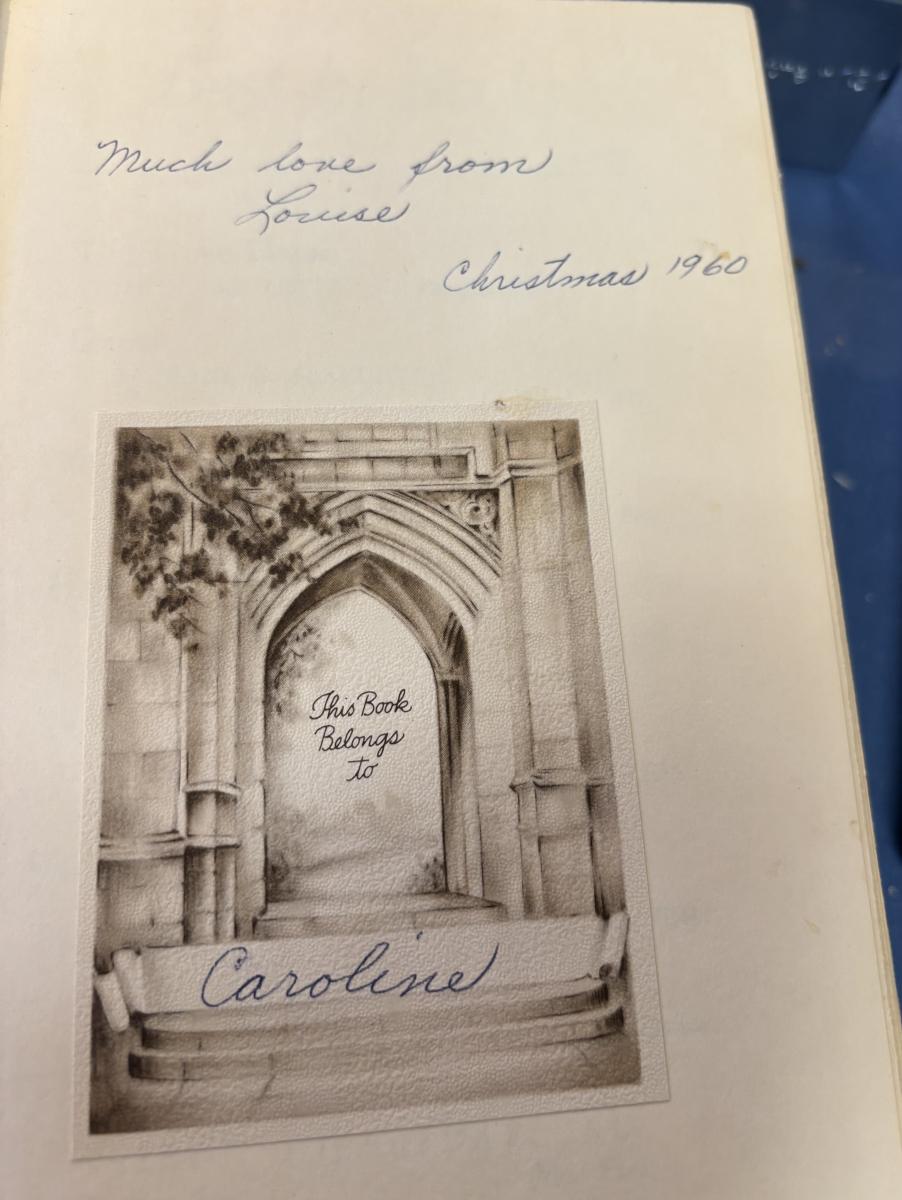 Much love from
Louise
Christmas 1960
This Book
Belongs
to
Caroline